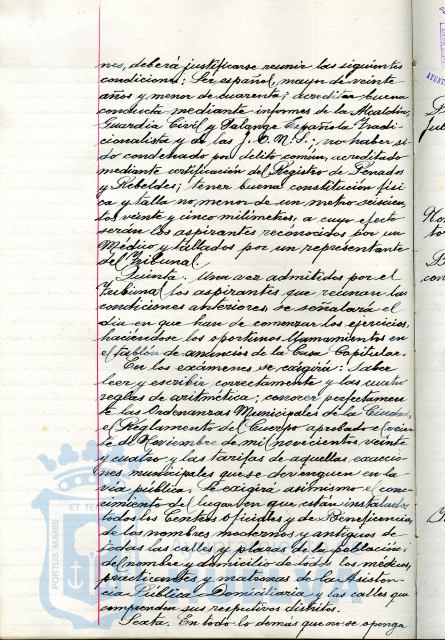 nes, deberá justificarse reunir las siguientes
condiciones: Ser español, mayor de veinte
años y menor de cuarenta; acreditar buena
conducta mediante informes de la Alcaldía,
Guardia Civil y Falange Española Tradi-
cionalista y de las J.O.N.S.; no haber si-
do condenado por delito común, acreditado
mediante certificación del Registro de Penados
y Rebeldes; tener buena constitución físi-
ca y talla no menor de un metro seiscien-
tos veinte y cinco milímetros, a cuyo efecto
serán los aspirantes reconocidos por un
Médico y tallados por un representante
del Tribunal.
Quinta. Una vez admitidos por el
Tribunal los aspirantes que reúnan las
condiciones anteriores, se señalará el
día en que han de comenzar los ejercicios,
haciéndose los oportunos llamamientos en
el tablón de anuncios de la Casa Capitular.
En los exámenes se exigirá: Saber
leer y escribir correctamente y las cuatro
reglas de aritmética; conocer perfectamen-
te las Ordenanzas Municipales de la Ciudad,
el Reglamento del Cuerpo aprobado el vein-
te de Noviembre de mil novecientos veinte
y cuatro y las tarifas de aquellas exaccio-
nes municipales que se devenguen en la
vía pública. Se exigirá asimismo el cono-
cimiento del lugar en que están instalados
todos los Centros oficiales y de Beneficencia,
de los nombres modernos y antiguos de
todas las calles y plazas de la población;
del nombre y domicilio de todos los médicos,
practicantes y matronas de la Asisten-
cia Pública Domiciliaria y las calles que
comprenden sus respectivos distritos.
Sexta. En todo lo demás que no se oponga
PORTUS MARIS
ET TE